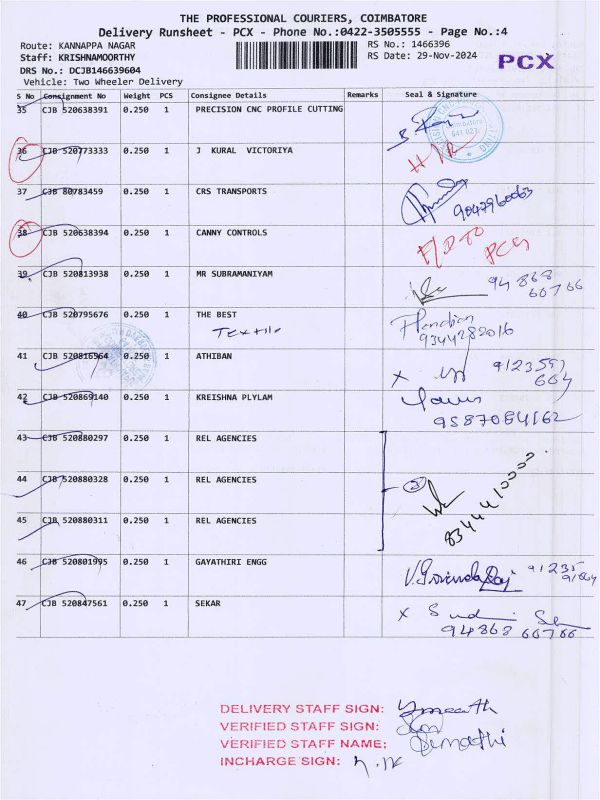 THE PROFESSIONAL COURIERS, COIMBATORE
Delivery Runsheet - PCX - Phone No.:0422-3505555 - Page No.:4
Route: KANNAPPA NAGAR RS No.: 1466396
Staff: KRISHNAMOORTHY RS Date: 29-Nov-2024 PCX
DRS No.: DCJB146639604
Vehicle: Two Wheeler Delivery
S No Consignment No Weight PCS Consignee Details Remarks Seal & Signature
35 CJB 520638391 0.250 1 PRECISION CNC PROFILE CUTTING
36 CJB 520773333 0.250 1 J KURAL VICTORIYA
37 CJB 80783459 0.250 1 CRS TRANSPORTS 9047960063
38 CJB 520638394 0.250 1 CANNY CONTROLS
39 CJB 520813938 0.250 1 MR SUBRAMANIYAM 94868
60766
40 CJB 520795676 0.250 1 THE BEST
Textile 9344282016
41 CJB 520816564 0.250 1 ATHIBAN
42 CJB 520869140 0.250 1 KREISHNA PLYLAM
9587084162
43 CJB 520880297 0.250 1 REL AGENCIES
44 CJB 520880328 0.250 1 REL AGENCIES 8344410000
45 CJB 520880311 0.250 1 REL AGENCIES
46 CJB 520801995 0.250 1 GAYATHIRI ENGG
47 CJB 520847561 0.250 1 SEKAR
94868 60766
DELIVERY STAFF SIGN:
VERIFIED STAFF SIGN:
VERIFIED STAFF NAME:
INCHARGE SIGN: